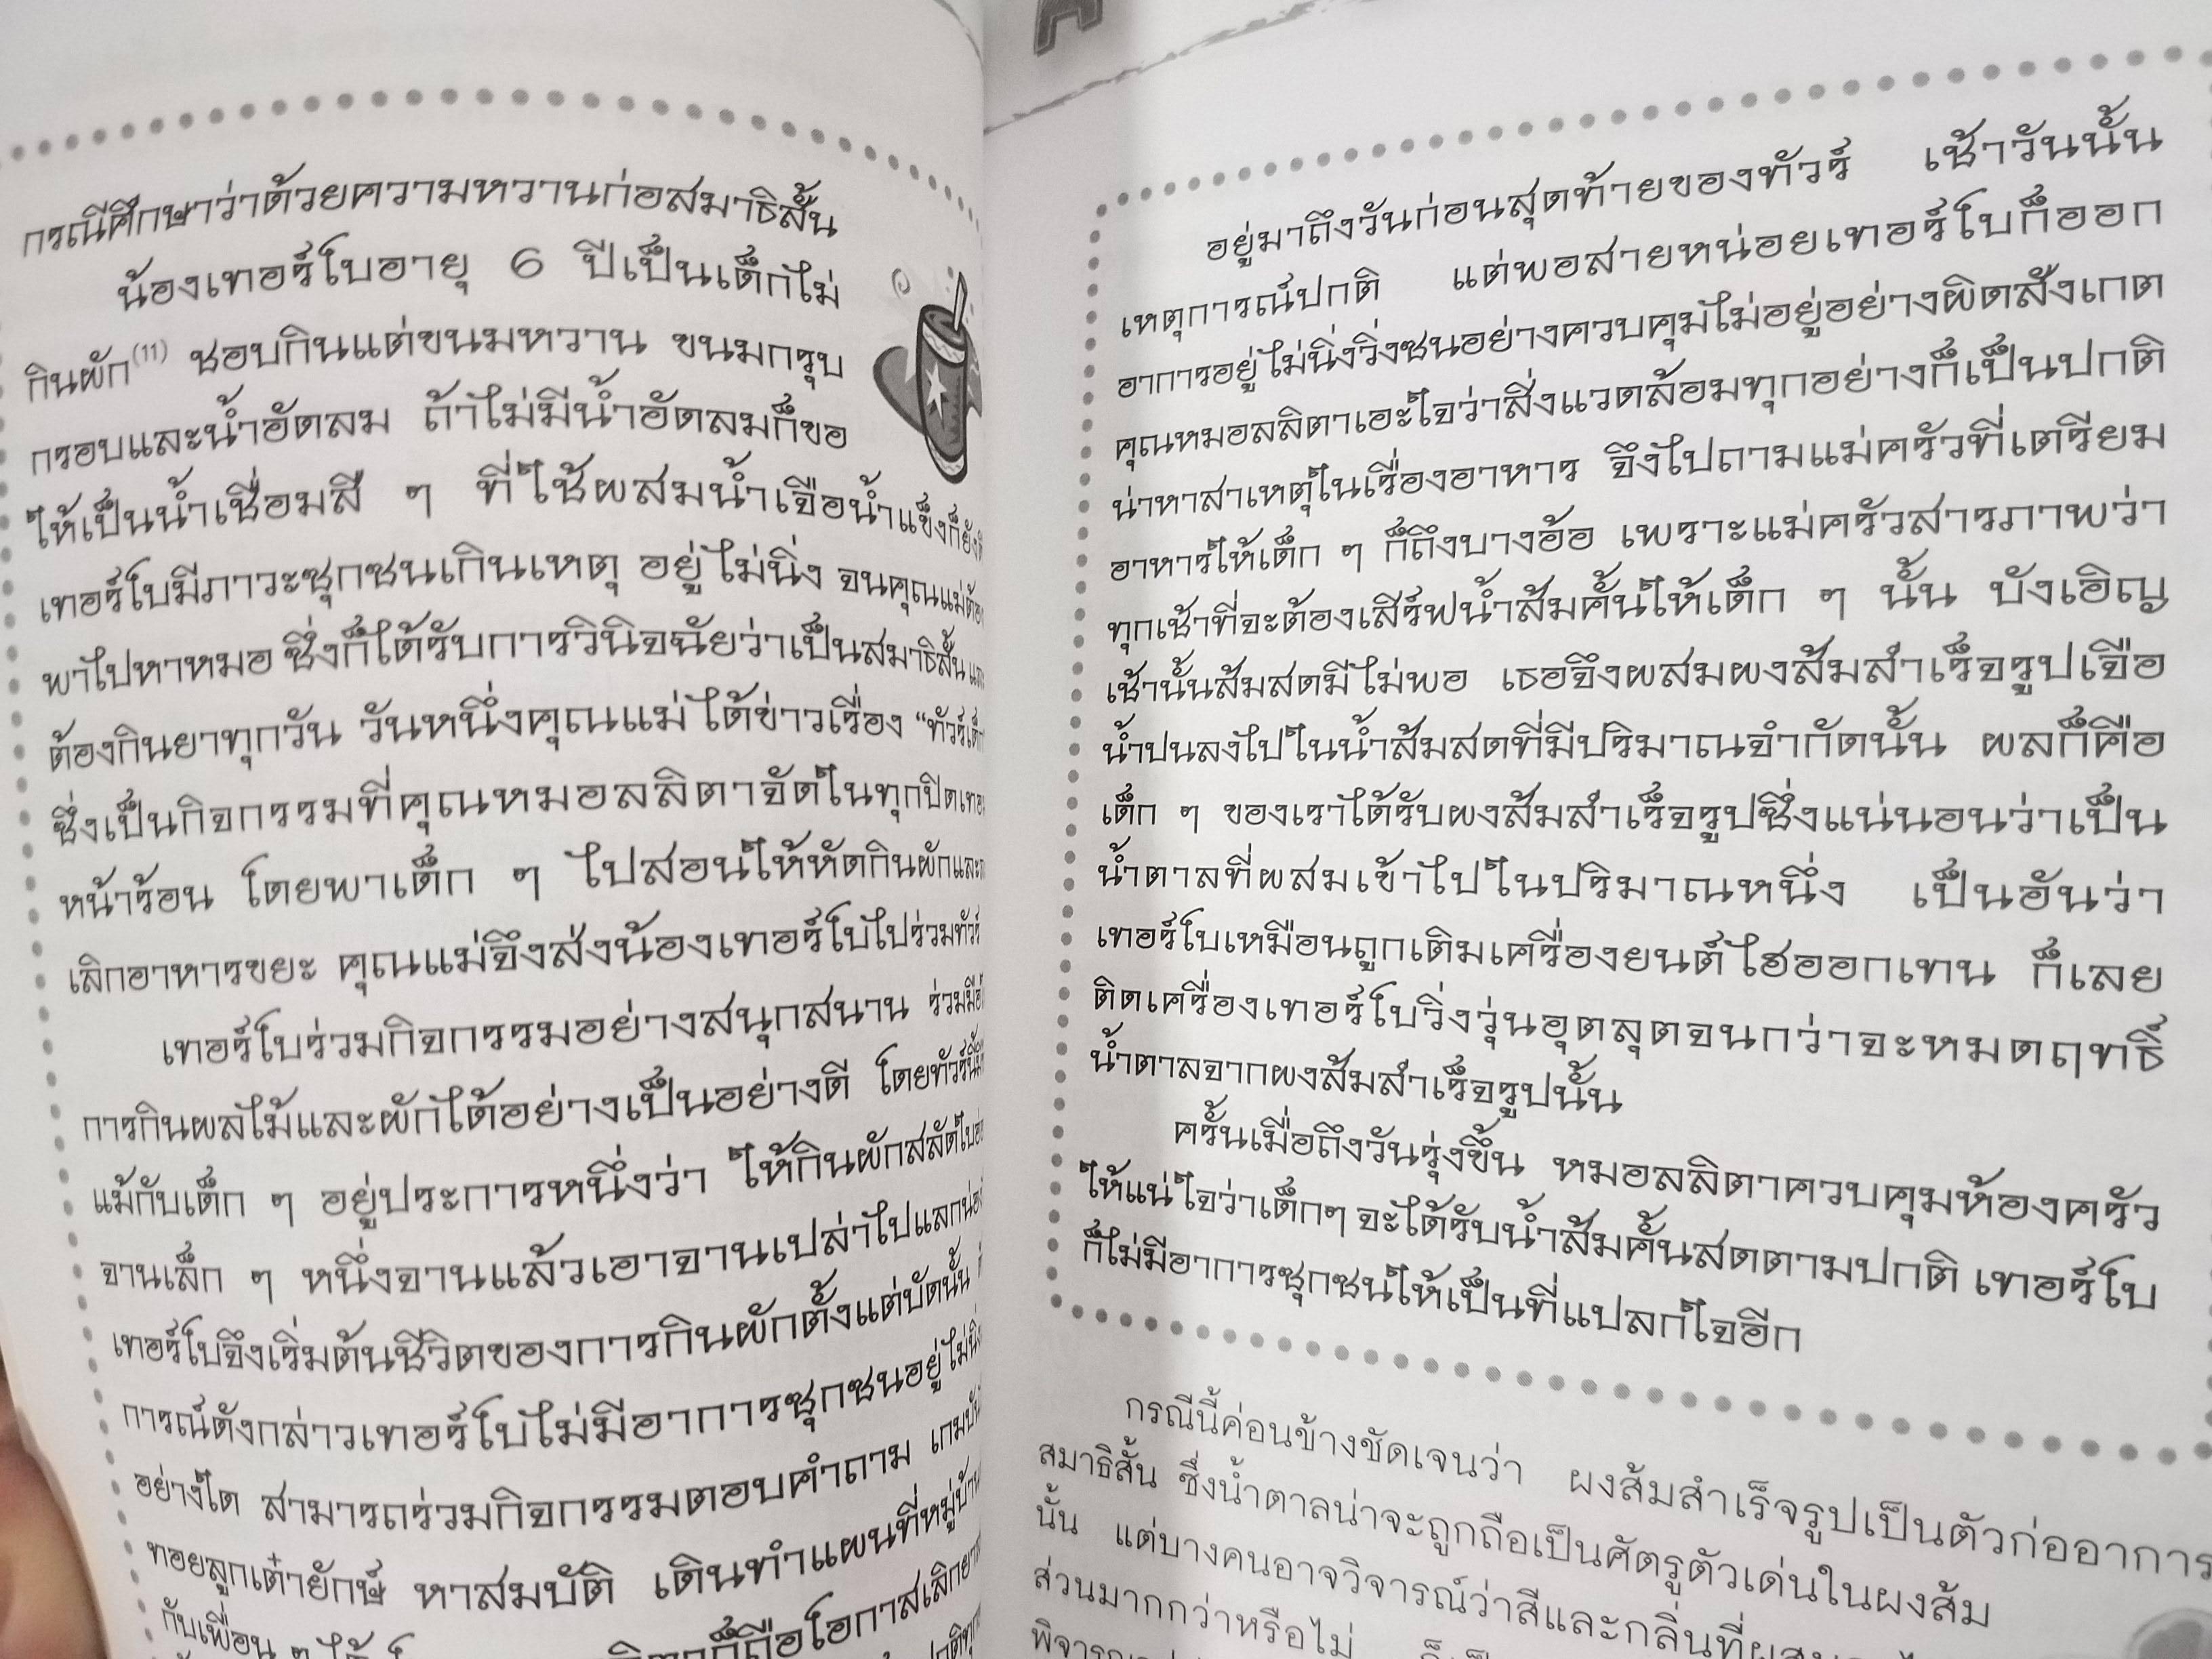 กรณีศึกษาว่าด้วยความหวานก่อสมาธิสั้น
น้องเทอร์โบอายุ 6 ปีเป็นเด็กไม่
กินผัก(11) ชอบกินแต่ขนมหวาน ขนมกรุบ
กรอบและน้ำอัดลม ถ้าไม่มีน้ำอัดลมก็ขอ
ให้เป็นน้ำเชื่อมสี ๆ ที่ใช้ผสมน้ำเจือน้ำแข็งก็ยัง
เทอร์โบมีภาวะซุกซนเกินเหตุ อยู่ไม่นิ่ง จนคุณแม่ต้อง
พาไปหาหมอ ซึ่งก็ได้รับการวินิจฉัยว่าเป็นสมาธิสั้น
ต้องกินยาทุกวัน วันหนึ่งคุณแม่ได้ข่าวเรื่อง “ทัวร์เด็ก
ซึ่งเป็นกิจกรรมที่คุณหมอลลิตาจัดในทุกปิดเทอ
หน้าร้อน โดยพาเด็ก ๆ ไปสอนให้หัดกินผักและ
เลิกอาหารขยะ คุณแม่จึงส่งน้องเทอร์โบไปร่วมทัวร์
เทอร์โบร่วมกิจกรรมอย่างสนุกสนาน ร่วมมือ
การกินผลไม้และผักได้อย่างเป็นอย่างดี โดยทัวร์นี้
แม้กับเด็ก ๆ อยู่ประการหนึ่งว่า ให้กินผักสลัดใบ
จานเล็ก ๆ หนึ่งจานแล้วเอาจานเปล่าไปแลกน่อง
เทอร์โบจึงเริ่มต้นชีวิตของการกินผักตั้งแต่บัดนั้น
การณ์ดังกล่าวเทอร์โบไม่มีอาการซุกซนอยู่ไม่นิ่ง
อย่างใด สามารถร่วมกิจกรรมตอบคำถาม เกม
ทอยลูกเต๋ายักษ์ หาสมบัติ เดินทำแผนที่หมู่บ้าน
กับเพื่อน ๆ ได้ ก็ถือโอกาสเลิกยา
อยู่มาถึงวันก่อนสุดท้ายของทัวร์ เช้าวันนั้น
เหตุการณ์ปกติ แต่พอสายหน่อยเทอร์โบก็ออก
อาการอยู่ไม่นิ่งวิ่งซนอย่างควบคุมไม่อยู่อย่างผิดสังเกต
คุณหมอลลิตาเอะใจว่าสิ่งแวดล้อมทุกอย่างก็เป็นปกติ
น่าหาสาเหตุในเรื่องอาหาร จึงไปถามแม่ครัวที่เตรียม
อาหารให้เด็ก ๆ ก็ถึงบางอ้อ เพราะแม่ครัวสารภาพว่า
ทุกเช้าที่จะต้องเสิร์ฟน้ำส้มคั้นให้เด็ก ๆ นั้น บังเอิญ
เช้านั้นส้มสดมีไม่พอ เธอจึงผสมผงส้มสำเร็จรูปเจือ
น้ำปนลงไปในน้ำส้มสดที่มีปริมาณจำกัดนั้น ผลก็คือ
เด็ก ๆ ของเราได้รับผงส้มสำเร็จรูปซึ่งแน่นอนว่าเป็น
น้ำตาลที่ผสมเข้าไปในปริมาณหนึ่ง เป็นอันว่า
เทอร์โบเหมือนถูกเติมเครื่องยนต์ไฮออกเทน ก็เลย
ติดเครื่องเทอร์โบวิ่งวุ่นอุตลุดจนกว่าจะหมดฤทธิ์
น้ำตาลจากผงส้มสำเร็จรูปนั้น
ครั้นเมื่อถึงวันรุ่งขึ้น หมอลลิตาควบคุมห้องครัว
ให้แน่ใจว่าเด็กๆ จะได้รับน้ำส้มคั้นสดตามปกติ เทอร์โบ
ก็ไม่มีอาการซุกซนให้เป็นที่แปลกใจอีก
กรณีนี้ค่อนข้างชัดเจนว่า ผงส้มสำเร็จรูปเป็นตัวก่ออาการ
สมาธิสั้น ซึ่งน้ำตาลน่าจะถูกถือเป็นศัตรูตัวเด่นในผงส้ม
นั้น แต่บางคนอาจวิจารณ์ว่าสีและกลิ่นที่ผสม
ส่วนมากกว่าหรือไม่